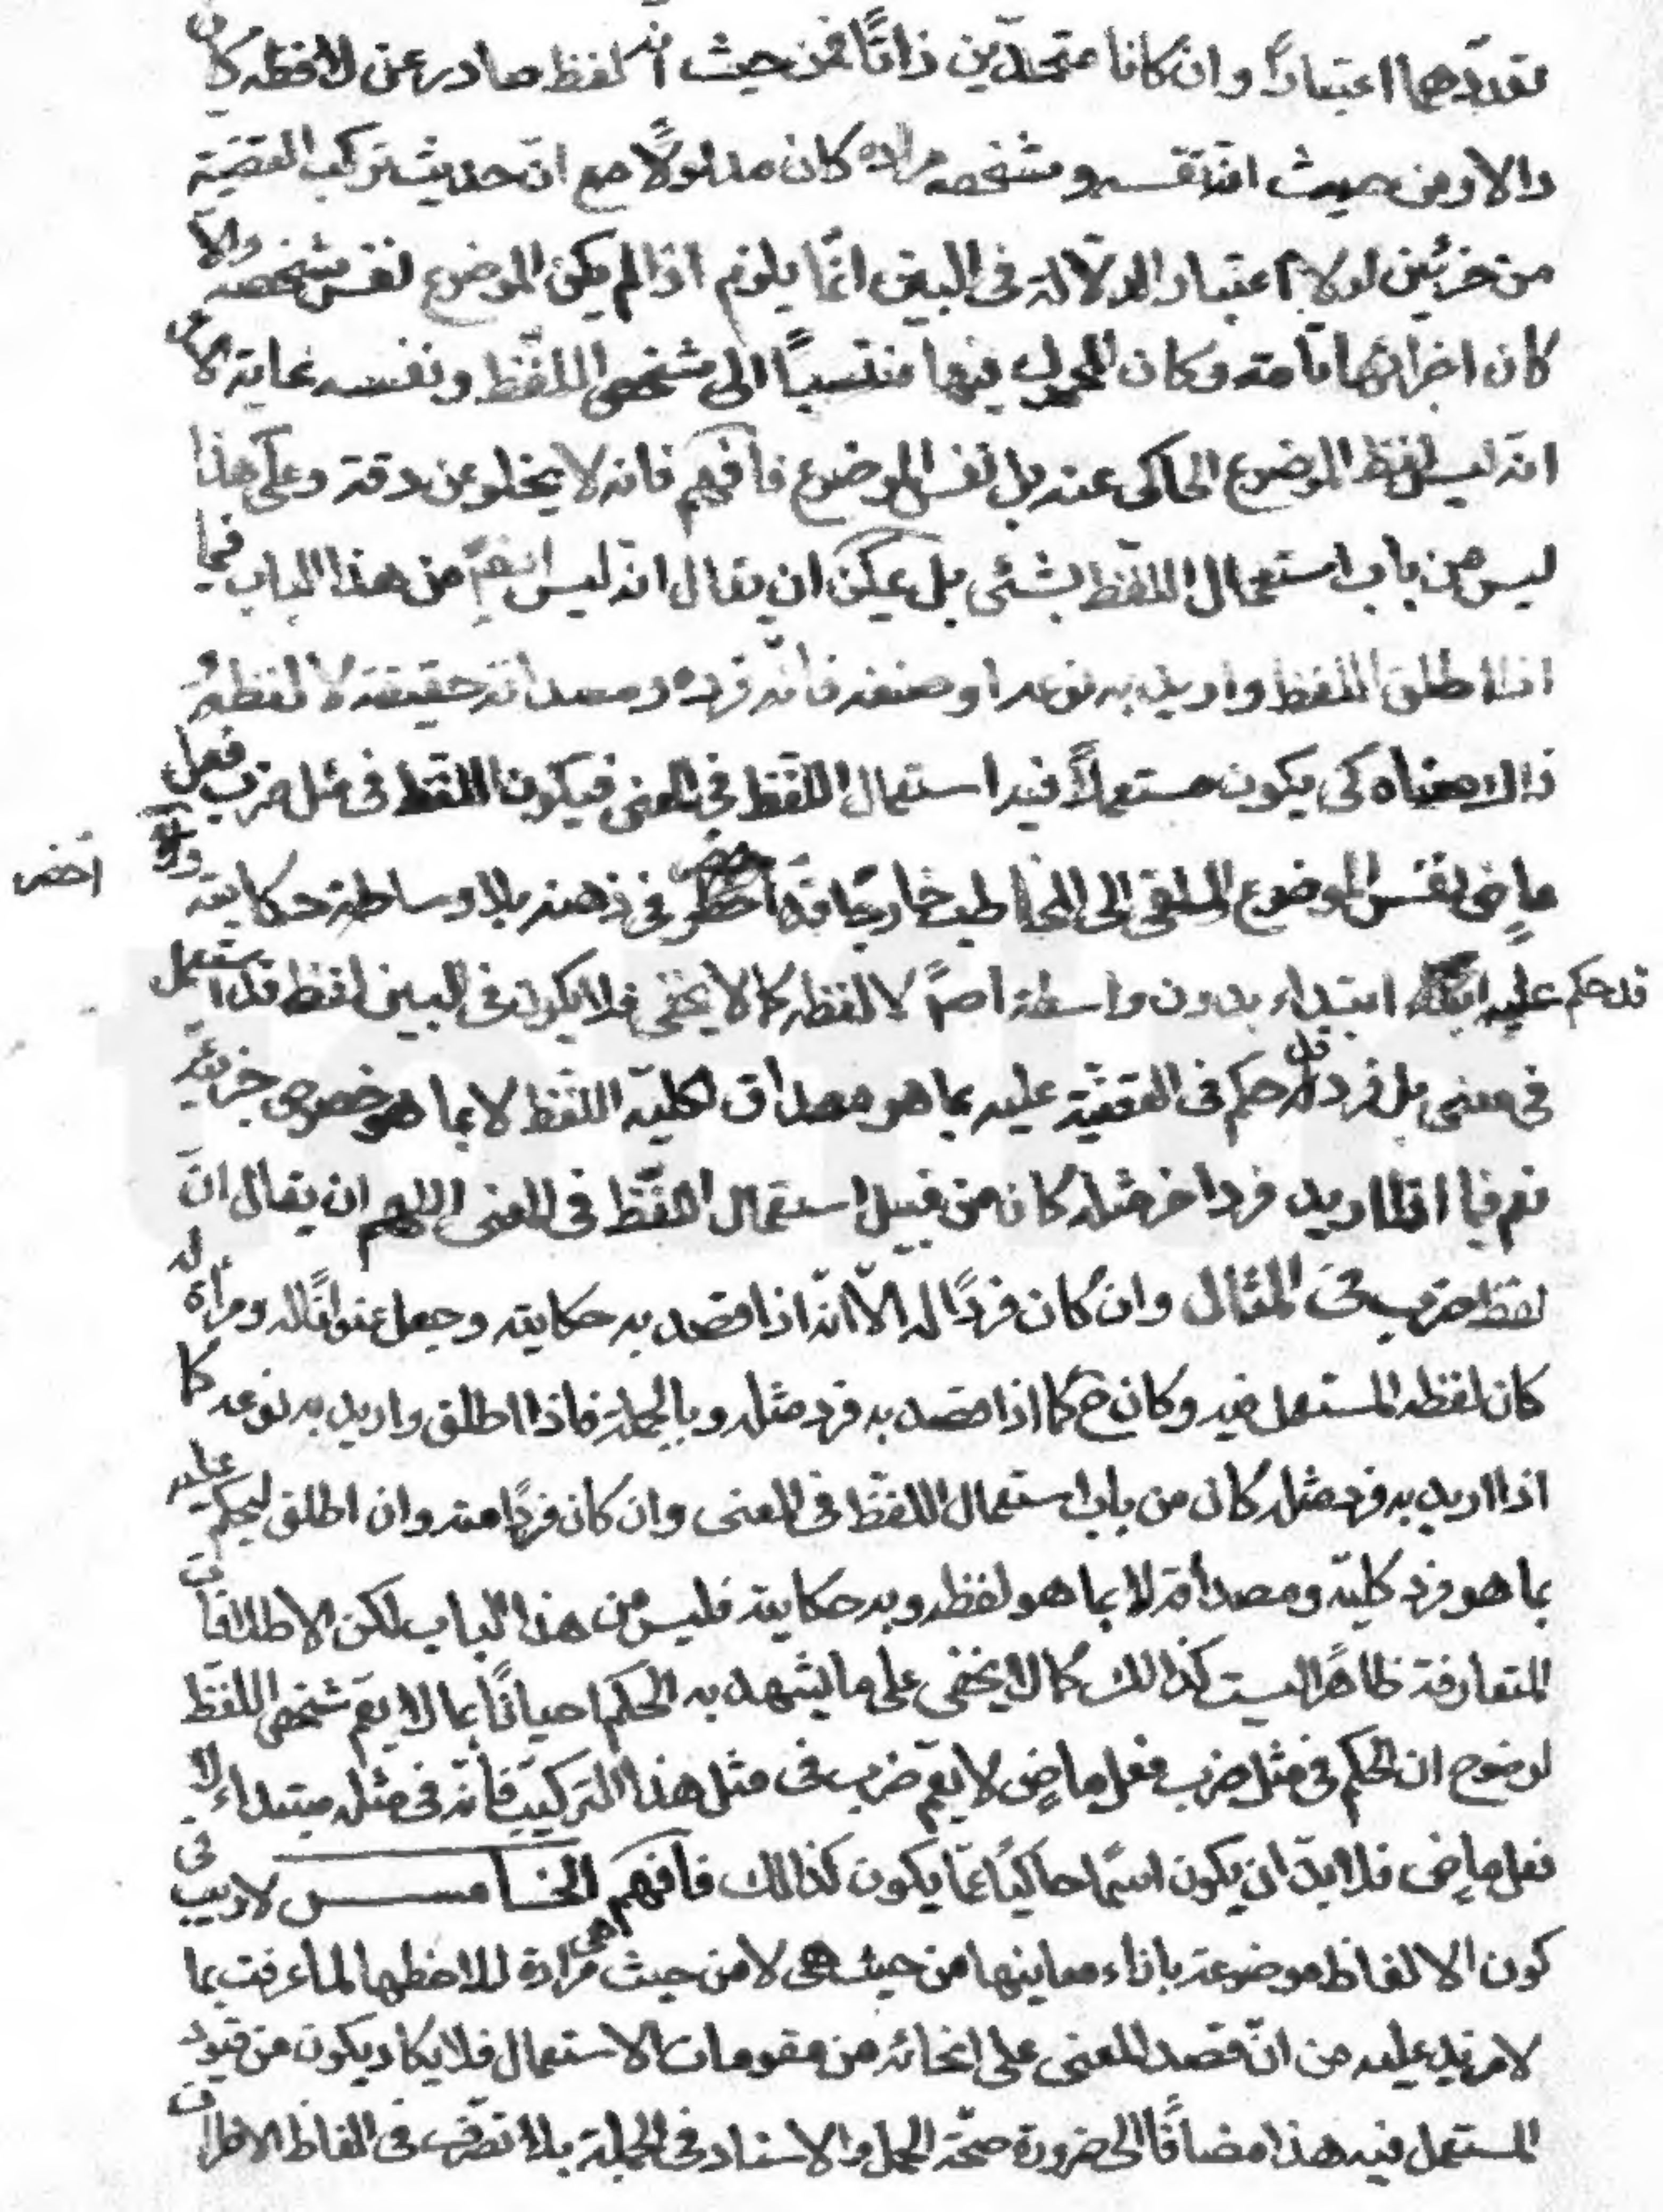 تعددهما اعتباراً وان كانا متحدين ذاتاً فمن حيث انه لفظ صادر عن لافظه كان
دالا ومن حيث انّ نفسه وشخصه مراده كان مدلولاً مع ان حديث تركب القضية
من جزئين لولا اعتبار الدلالة فى البين انّما يلزم اذا لم يكن الموضوع نفس شخصه والاّ
كان اجزائها تامة وكان المحمول فيها منتسباً الى شخص اللفظ ونفسه غاية الامر
انّه ليس لفظ الموضوع الحاكى عنه بل نفس الموضوع فافهم فانه لا يخلو عن دقة وعلى هذا
ليس من باب استعمال اللفظ بشئى بل يمكن ان يقال انه ليس ايضاً من هذا الباب فيما
اذا اطلق اللفظ واريد به نوعه او صنفه فانّه فرده ومصداقه حقيقة لا لفظه و
ذاك معناه كى يكون مستعملاً فيه استعمال اللفظ فى المعنى فيكون اللفظ فى مثل ضرب فعل
ماضٍ نفس الموضوع الملقى الى المخاطب خارجاً قد احضر فى ذهنه بلا وساطة حكاية
احضر
قد حكم عليه ابتداء بدون واسطة اصلاً لا لفظه كما لا يخفى فلا يكون فى البين لفظ قد استعمل
فى معنى بل فرد قد حكم فى القضية عليه بما هو مصداق لكلية اللفظ لا بما هو خصوص جزئية
نعم فيما اذا اريد فرد اخر مثله كان من قبيل استعمال اللفظ فى المعنى اللهم ان يقال انّ
لفظ ضرب فى المثال وان كان فرداً له الاّ انّه اذا قصد به حكايته وجعل عنواناً له ومراة له
كان لفظه المستعمل فيه وكان ح كما اذا قصد به فرد مثله وبالجملة فاذا اطلق واريد به نوعه كما
اذا اريد به فرد مثله كان من باب استعمال اللفظ فى المعنى وان كان فرداً منه وان اطلق ليحكم عليه
بما هو فرد كليّه ومصداقه لا بما هو لفظه وبه حكايته فليس من هذا الباب لكن الاطلاقات
المتعارفة ظاهراً ليست كذالك كما لا يخفى على ما يشهد به الحكم احياناً بما لا يعمّ شخص اللفظ
لوضوح ان الحكم فى مثل ضرب فعل ماضٍ لا يعمّ ضرب فى مثل هذا التركيب فانّه فى مثله مبتداء لا
فعل ماضى فلا بدّ ان يكون اسماً حاكياً عمّا يكون كذالك فافهم الخامس لا ريب فى
كون الالفاظ موضوعة بازاء معاينها من حيث هى لا من حيث هى مرادة للافظها لما عرفت بما
لا مزيد عليه من انّ قصد المعنى على انحائه من مقومات الاستعمال فلا يكاد يكون من قيود
المستعمل فيه هذا مضافاً الى ضرورة صحّة الحمل والاسناد فى الجملة بلا تصرّف فى الفاظ الاطراف